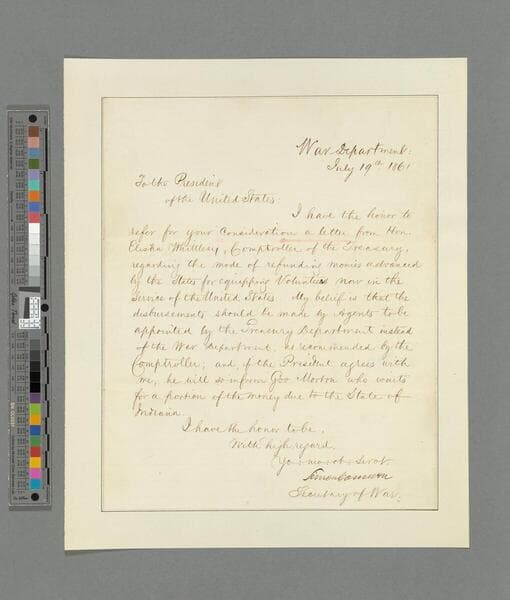 War Department:
July 19th 1861
To the President
of the United States.
I have the honor to
refer for your Consideration a letter from Hon.
Elisha Whittlesey, Comptroller of the Treasury,
regarding the mode of refunding monies advanced
by the States for equipping Volunteers now in the
service of the United States. My belief is that the
disbursements should be made by Agents to be
appointed by the Treasury Department instead
of the War Department, as recommended by the
Comptroller; and if the President agrees with
me, he will so inform Gov Morton who waits
for a portion of the money due to the State of
Indiana.
I have the honor to be,
With high regard
Yo. mo. obt. Servt.
Simon Cameron
Secretary of War.